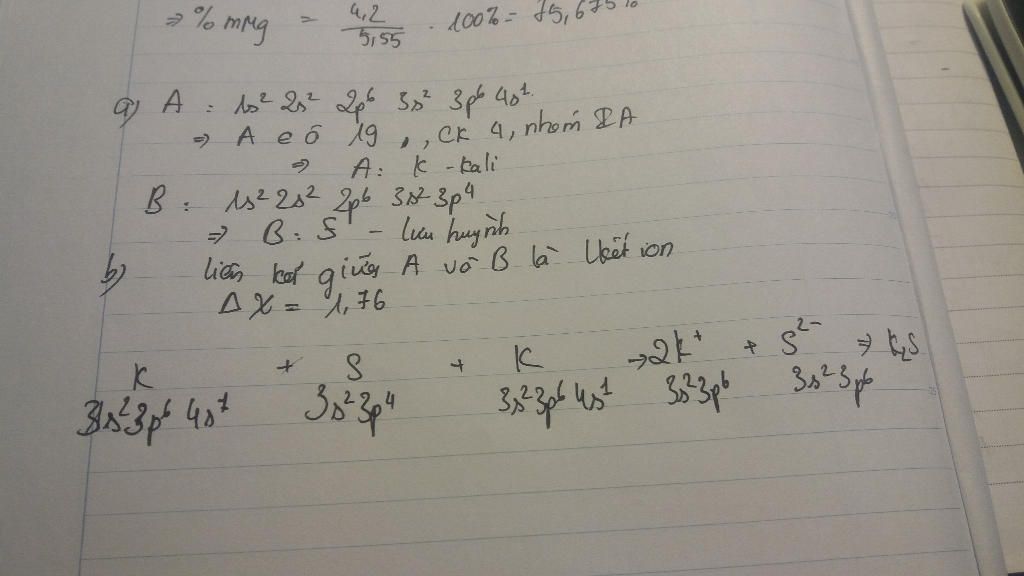 ⇒ % mMg = 4,2/5,55 . 100% = 75,675%
a) A : 1s² 2s² 2p⁶ 3s² 3p⁶ 4s¹
⇒ A e ô 19 , , CK 4, nhóm IA
⇒ A: K - kali
B : 1s² 2s² 2p⁶ 3s² 3p⁴
⇒ B: S - lưu huỳnh
b) liên kết giữa A và B là lkết ion
Δ X = 1,76
K + S + K → 2K⁺ + S²⁻ ⇒ K₂S
3s² 3p⁶ 4s¹ 3s² 3p⁴ 3s² 3p⁶ 4s¹ 3s² 3p⁶ 3s² 3p⁶